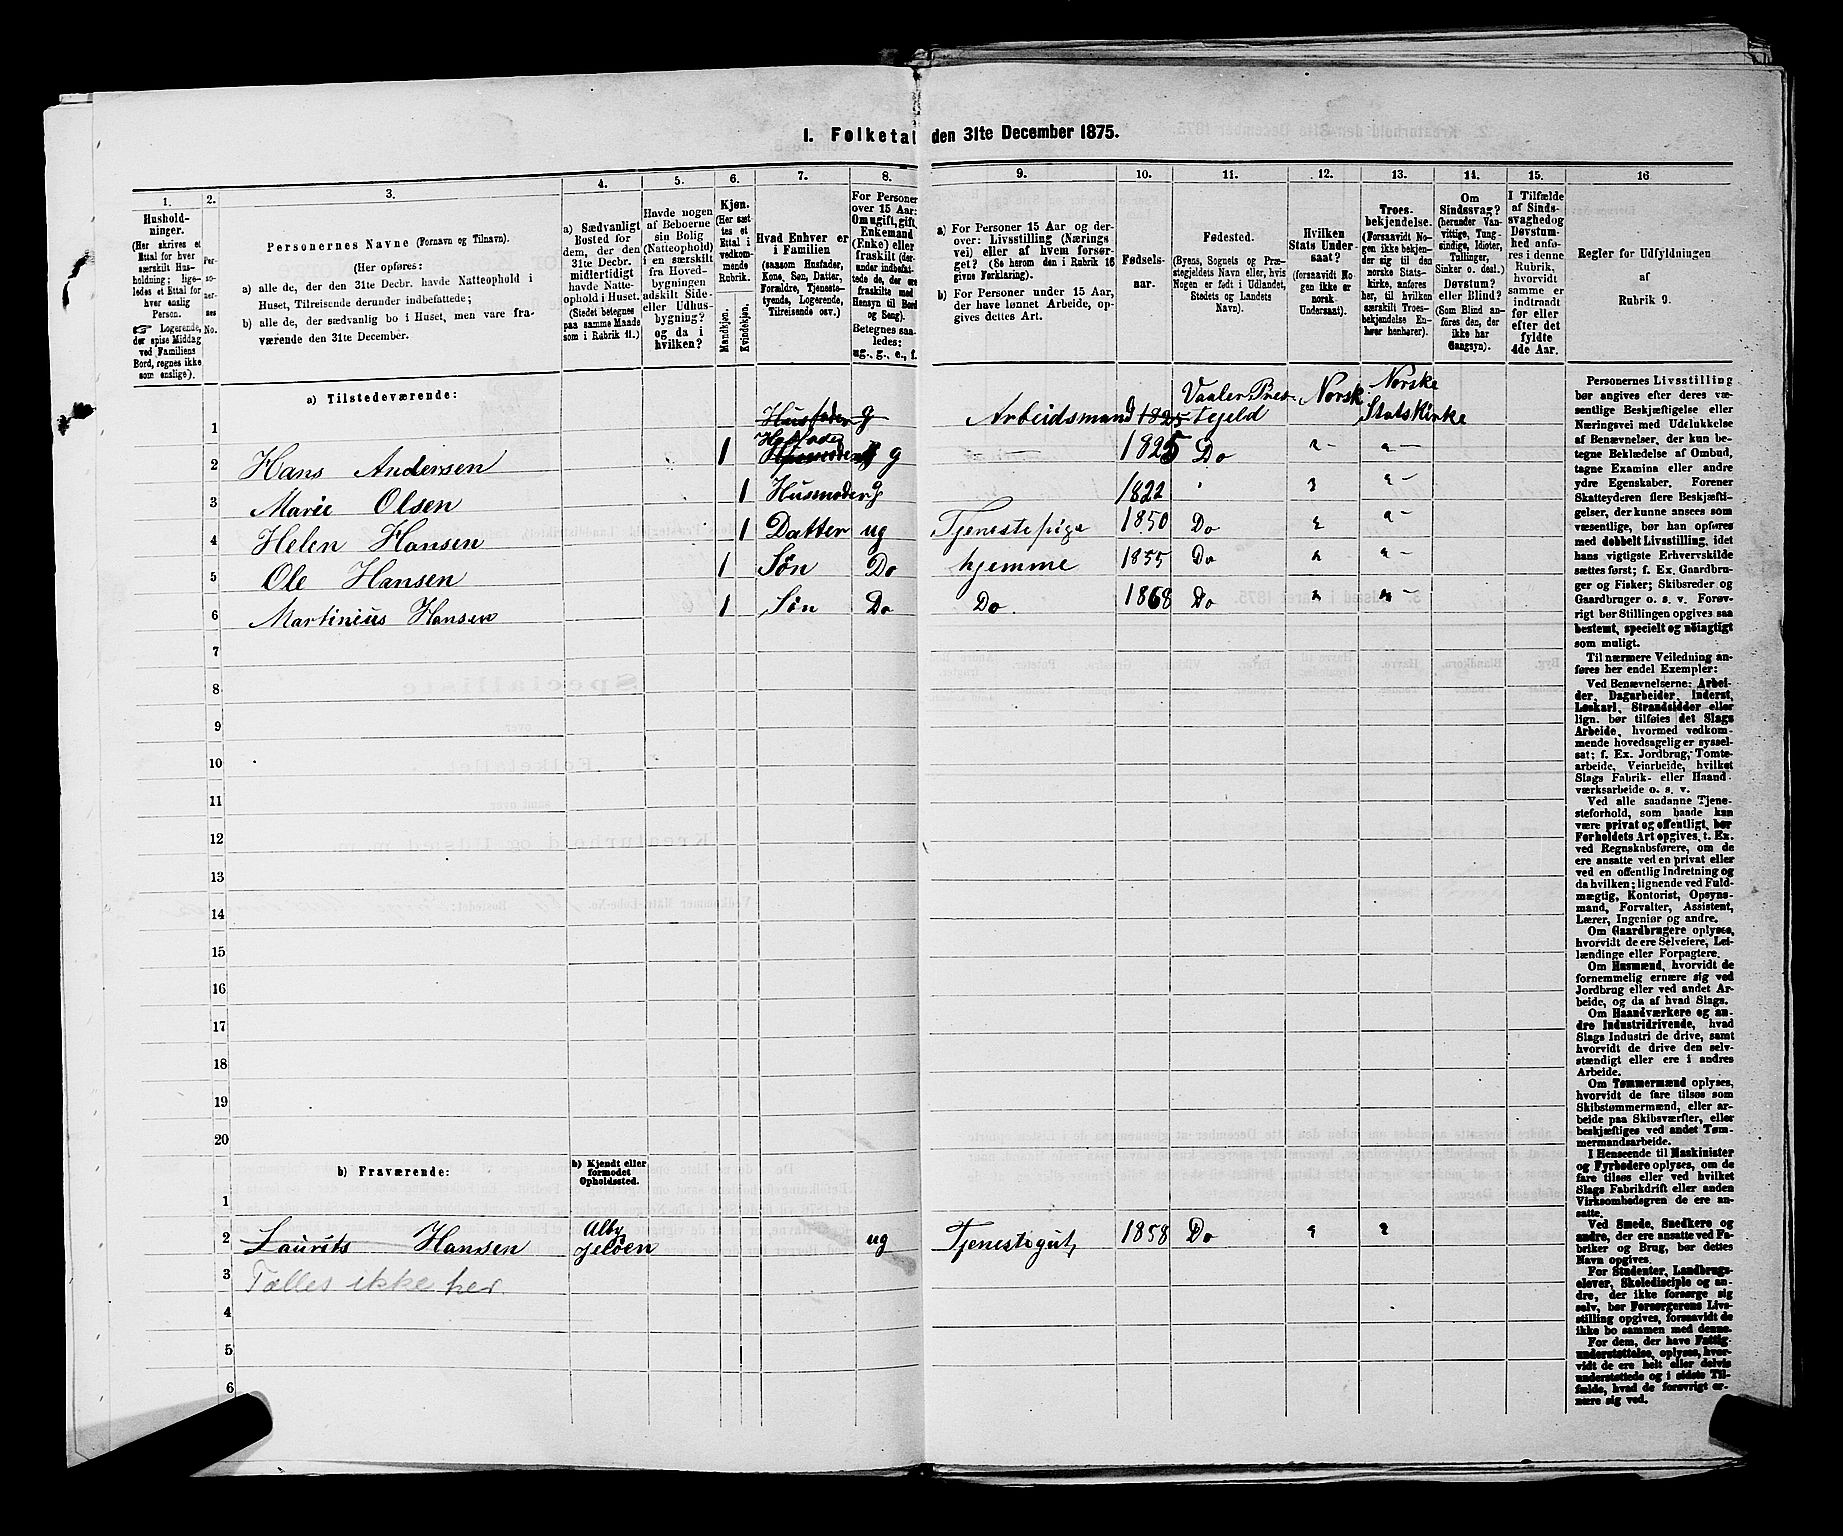 I. Folketal den 31te December 1875.
1.
2.
3.
4.
5.
6.
7.
8.
9.
10.
11.
12.
13.
14.
15.
16
Hushold-
ninger.
(Her skrives et
Ettal for hver
særskilt Hus-
holdning; lige-
ledes et Ettal for
hver enslig
Person.
☞ Logerende,
der spise Middag
ved Familiens
Bord, regnes ikke
som enslige).
Per-
so-
ner-
nes
No.
Personernes Navne (Fornavn og Tilnavn).
(Her opføres:
a) alle de, der den 31te Decbr. havde Natteophold i
Huset, Tilreisende derunder indbefattede;
b) alle de, der sædvanlig bo i Huset, men vare fra-
værende den 31te December.
a) Sædvanligt
Bosted for
dem, der den
31te Decbr.
midlertidigt
havde Natte-
ophold i Huset.
(Stedet betegnes
paa samme Maade
som i Rubrik 11.)
Havde nogen
af Beboerne
sin Bolig
(Natteophold)
i en særskilt
fra Hoved-
bygningen
adskilt Side-
eller Udhus-
bygning?
og da i
hvilken?
Kjøn.
(Her sæt-
tes et
Ettal i
vedkom-
mende
Rubrik.
Mandkjøn.
Kvindekjøn.
Hvad Enhver er
i Familien
(saasom Husfader,
Kone, Søn, Datter,
Forældre, Tjeneste-
tyende, Logerende,
Tilreisende osv.)
For Personer
over 15 Aar:
Om ugift, gift,
Enkemand
(Enke) eller
fraskilt (der-
under indbefat-
tede de, der ere
fraskilte med
Hensyn til Bord
og Seng).
Betegnes saa-
ledes:
ug., g., e., f.
a) For Personer 15 Aar og der-
over: Livsstilling (Nærings
vei) eller af hvem forsør-
get? (Se herom den i Rubrik 16
givne Forklaring).
b) For Personer under 15 Aar,
der have lønnet Arbeide, op-
gives dettes Art.
Fødsels-
aar.
Fødested.
(Byens, Sognets og Præ-
stegjeldets Navn eller, hvis
Nogen er født i Udlandet,
Stedets og Landets
Navn).
Hvilken
Stats Under-
saat?
(forsaavidt No-
gen ikke er
norsk
Undersaat).
Troes-
bekjendelse.
(Forsaavidt No-
gen ikke bekjen-
der sig til den
norske Stats-
kirke, anføres
her, til hvilken
særskilt Troes-
bekjendelse En-
hver henhører).
Om
Sindssvag?
(herunder Van-
vittige, Tung-
sindige, Idioter,
Tullinger,
Sinker o. desl.)
Døvstum?
eller Blind?
(Som Blind an-
føres den, der
ikke har
Gangsyn).
I Tilfælde
af Sinds-
svaghed og
Døvstum-
hed anfø-
res i denne
Rubrik,
hvorvidt
samme er
indtraadt
før eller
efter det
fyldte
4de Aar.
Regler for Udfyldningen
af
Rubrik 9.
a) Tilstedeværende:
1 Husfader g Arbeidsmand 1825 Vaaler Prestejeld Norsk Norske Statskirke
2 Hans Andersen 1 Husfader Husmoder g 1825 Do
3 Marie Olsen 1 Husmoder g 1822
4 Helen Hansen 1 Datter ug Tjenestepige 1850 Do
5 Ole Hansen 1 Søn Do hjemme 1855 Do
6 Martinius Hansen 1 Søn Do Do. 1868 Do
7
8
9
10
11
12
13
14
15
16
17
18
19
20
b) Fraværende:
b) Kjendt eller
formodet
Opholdssted.
1
2 Laurits Hansen Alby Jeløen ug Tjenestegut 1858 Do
3 Tælles ikke her
4
5
6
Personernes Livsstilling
bør angives efter deres væ-
sentlige Beskjæftigelse eller
Næringsvei med Udelukkelse
af Benævnelser, der kun be-
tegne Beklædelse af Ombud,
tagne Examina eller andre
ydre Egenskaber. Forener
Skatteyderen flere Beskjæfti-
gelser, der kunne ansees som
væsentlige, bør han opføres
med dobbelt Livsstilling, idet
hans vigtigste Erhvervskilde
sættes først; f. Ex. Gaardbru-
ger og Fisker; Skibsreder og
Gaardbruger o. s. v. Forøv-
rigt bør Stillingen opgives saa
bestemt, specielt og nøiagtigt
som muligt.
Til nærmere Veiledning an-
føres her endel Exempler:
Ved Benævnelserne: Arbei-
der, Dagarbeider, Inderst,
Løskarl, Strandsidder eller
lign. bør tilføies det Slags
Arbeide, hvormed vedkom-
mende hovedsagelig er syssel-
sat; f. Ex. Jordbrug, Tomte-
arbeide, Veiarbeide, hvilket
Slags Fabrik- eller Haand
værksarbeide o. s. v.
Ved alle saadanne Tjene-
steforhold, som baade kan
være privat og offentligt, bør
Forholdets Art opgives, t. Ex.
ved Regnskabsførere, om de
ere ansatte ved en privat eller
ved en offentlig Indretning og
da hvilken; lignende ved Fuld-
mægtig, Kontorist, Opsyns-
mand, Forvalter, Assistent,
Lærer, Ingeniør og andre.
Om Gaardbrugere oplyses,
hvorvidt de ere Selveiere, Lei-
lændinge eller Forpagtere.
Om Husmænd, hvorvidt de
fornemmelig ernære sig ved
Jordbrug eller ved andet Ar-
beide, og da af hvad Slags.
Om Haandværkere og an-
dre Industridrivende, hvad
Slags Industri de drive, samt
hvorvidt de drive den selv-
stændigt eller ere i andres
Arbeide.
Om Tømmermænd oplyses,
hvorvidt de fare tilsøs som
Skibstømmermænd, eller ar-
beide paa Skibsværfter, eller
beskjæftiges ved andet Tøm-
mermandsarbeide.
I Henseende til Maskinister
og Fyrbødere oplyses, om de
fare tilsøs eller ved hvilket
Slags Fabrikdrift eller anden
Virksomhedsgren de ere an-
satte.
Ved Smede, Snedkere og
andre, der ere ansatte ved Fa-
briker og Brug, bør dettes
Navn opgives.
For Studenter, Landbrugs-
elever, Skoledisciple og an-
dre, der ikke forsørge sig
selv, bør Forsørgerens Livs-
stilling opgives, forsaavidt de
ikke bo sammen med denne.
For dem, der have Fattig-
understøttelse, oplyses, hvor-
vidt de ere helt eller delvis
understøttede og i sidste Til-
fælde, hvad de forøvrigt er-
nære sig ved.